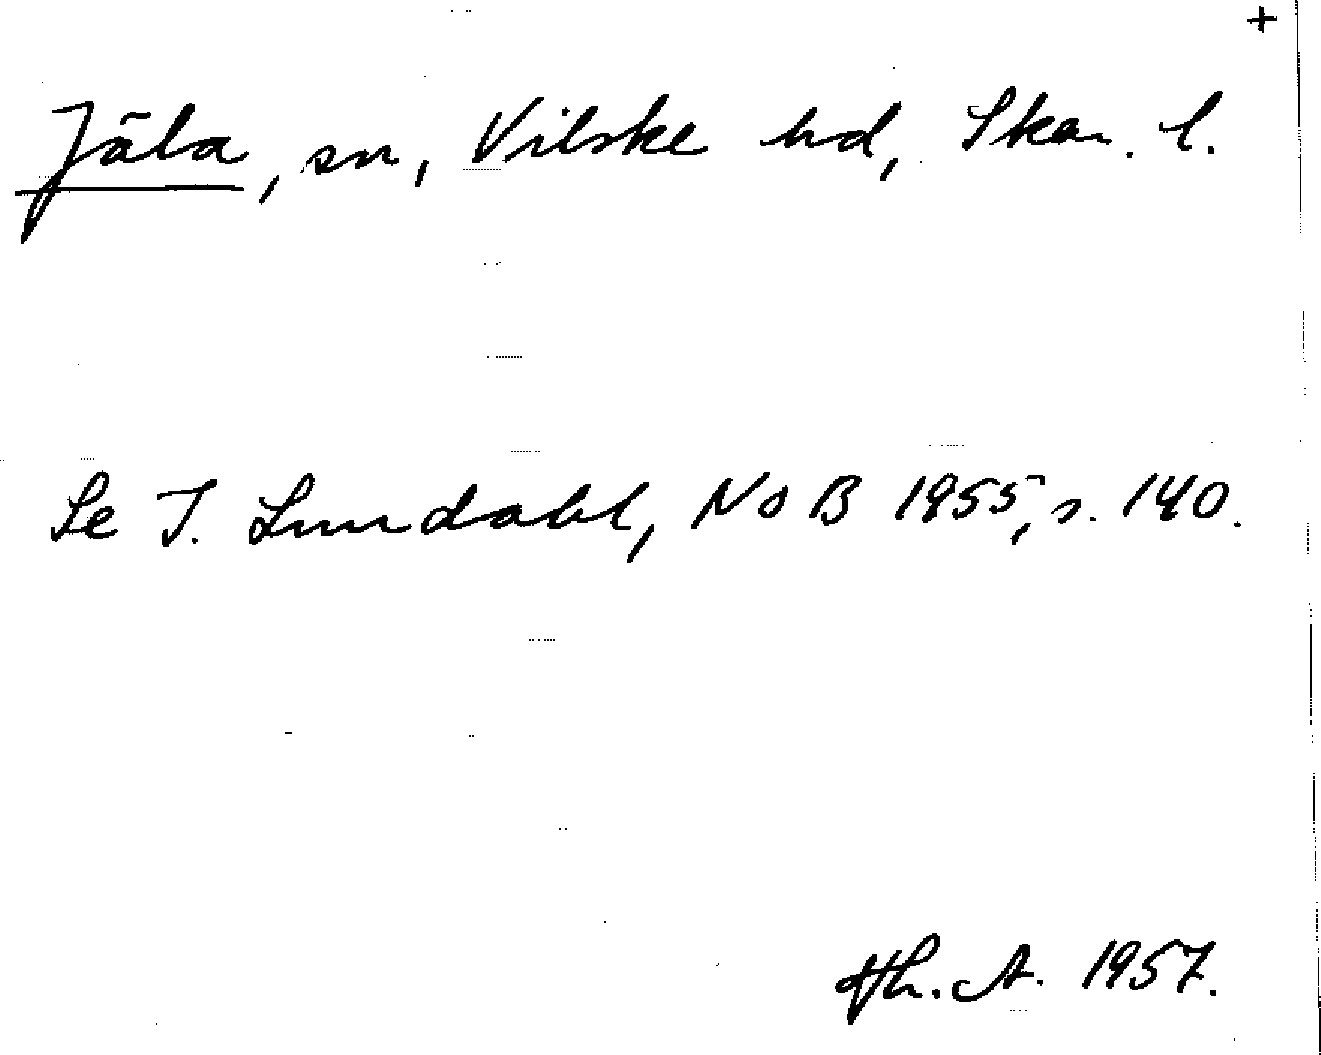 +
Jäla, sn, Vilske hd, Skar. l.
Se I. Lundahl, NoB 1955, s. 140.
Hh. A. 1957.